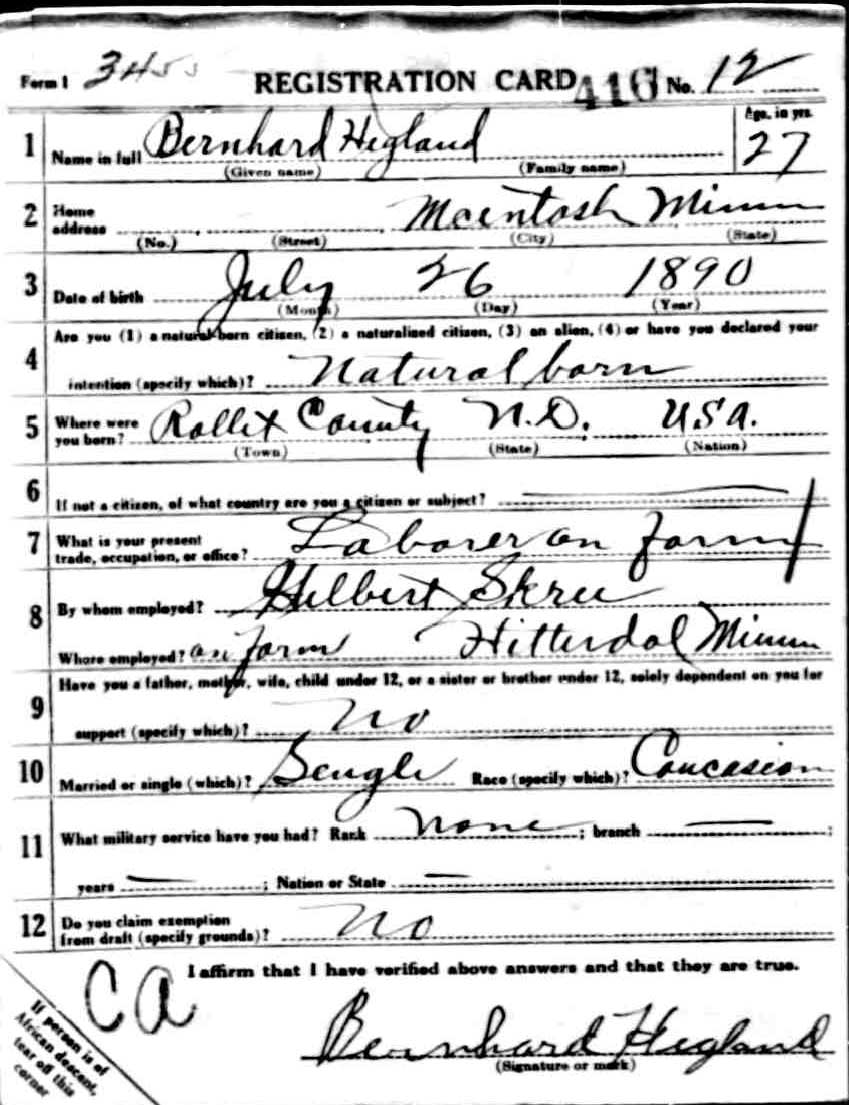 Form 1 3455 REGISTRATION CARD 416 No. 12
1 Name in full Bernhard Hegland Age, in yrs. 27
(Given name) (Family name)
2 Home address Mcintosh Minn
(No.) (Street) (City) (State)
3 Date of birth July 26 1890
(Month) (Day) (Year)
4 Are you (1) a natural-born citizen, (2) a naturalized citizen, (3) an alien, (4) or have you declared your
intention (specify which)? Natural born
5 Where were you born? Rollet County N.D. USA.
(Town) (State) (Nation)
6 If not a citizen, of what country are you a citizen or subject?
7 What is your present trade, occupation, or office? Laborer on farm
8 By whom employed? Hilbert Skree
Where employed? on farm Hitterdal Minn
9 Have you a father, mother, wife, child under 12, or a sister or brother under 12, solely dependent on you for
support (specify which)? No
10 Married or single (which)? Sengle Race (specify which)? Caucasian
11 What military service have you had? Rank none ; branch ;
years ; Nation or State
12 Do you claim exemption from draft (specify grounds)? No
I affirm that I have verified above answers and that they are true.
CA
Bernhard Hegland
(Signature or mark)
If person is of
African descent,
tear off this
corner